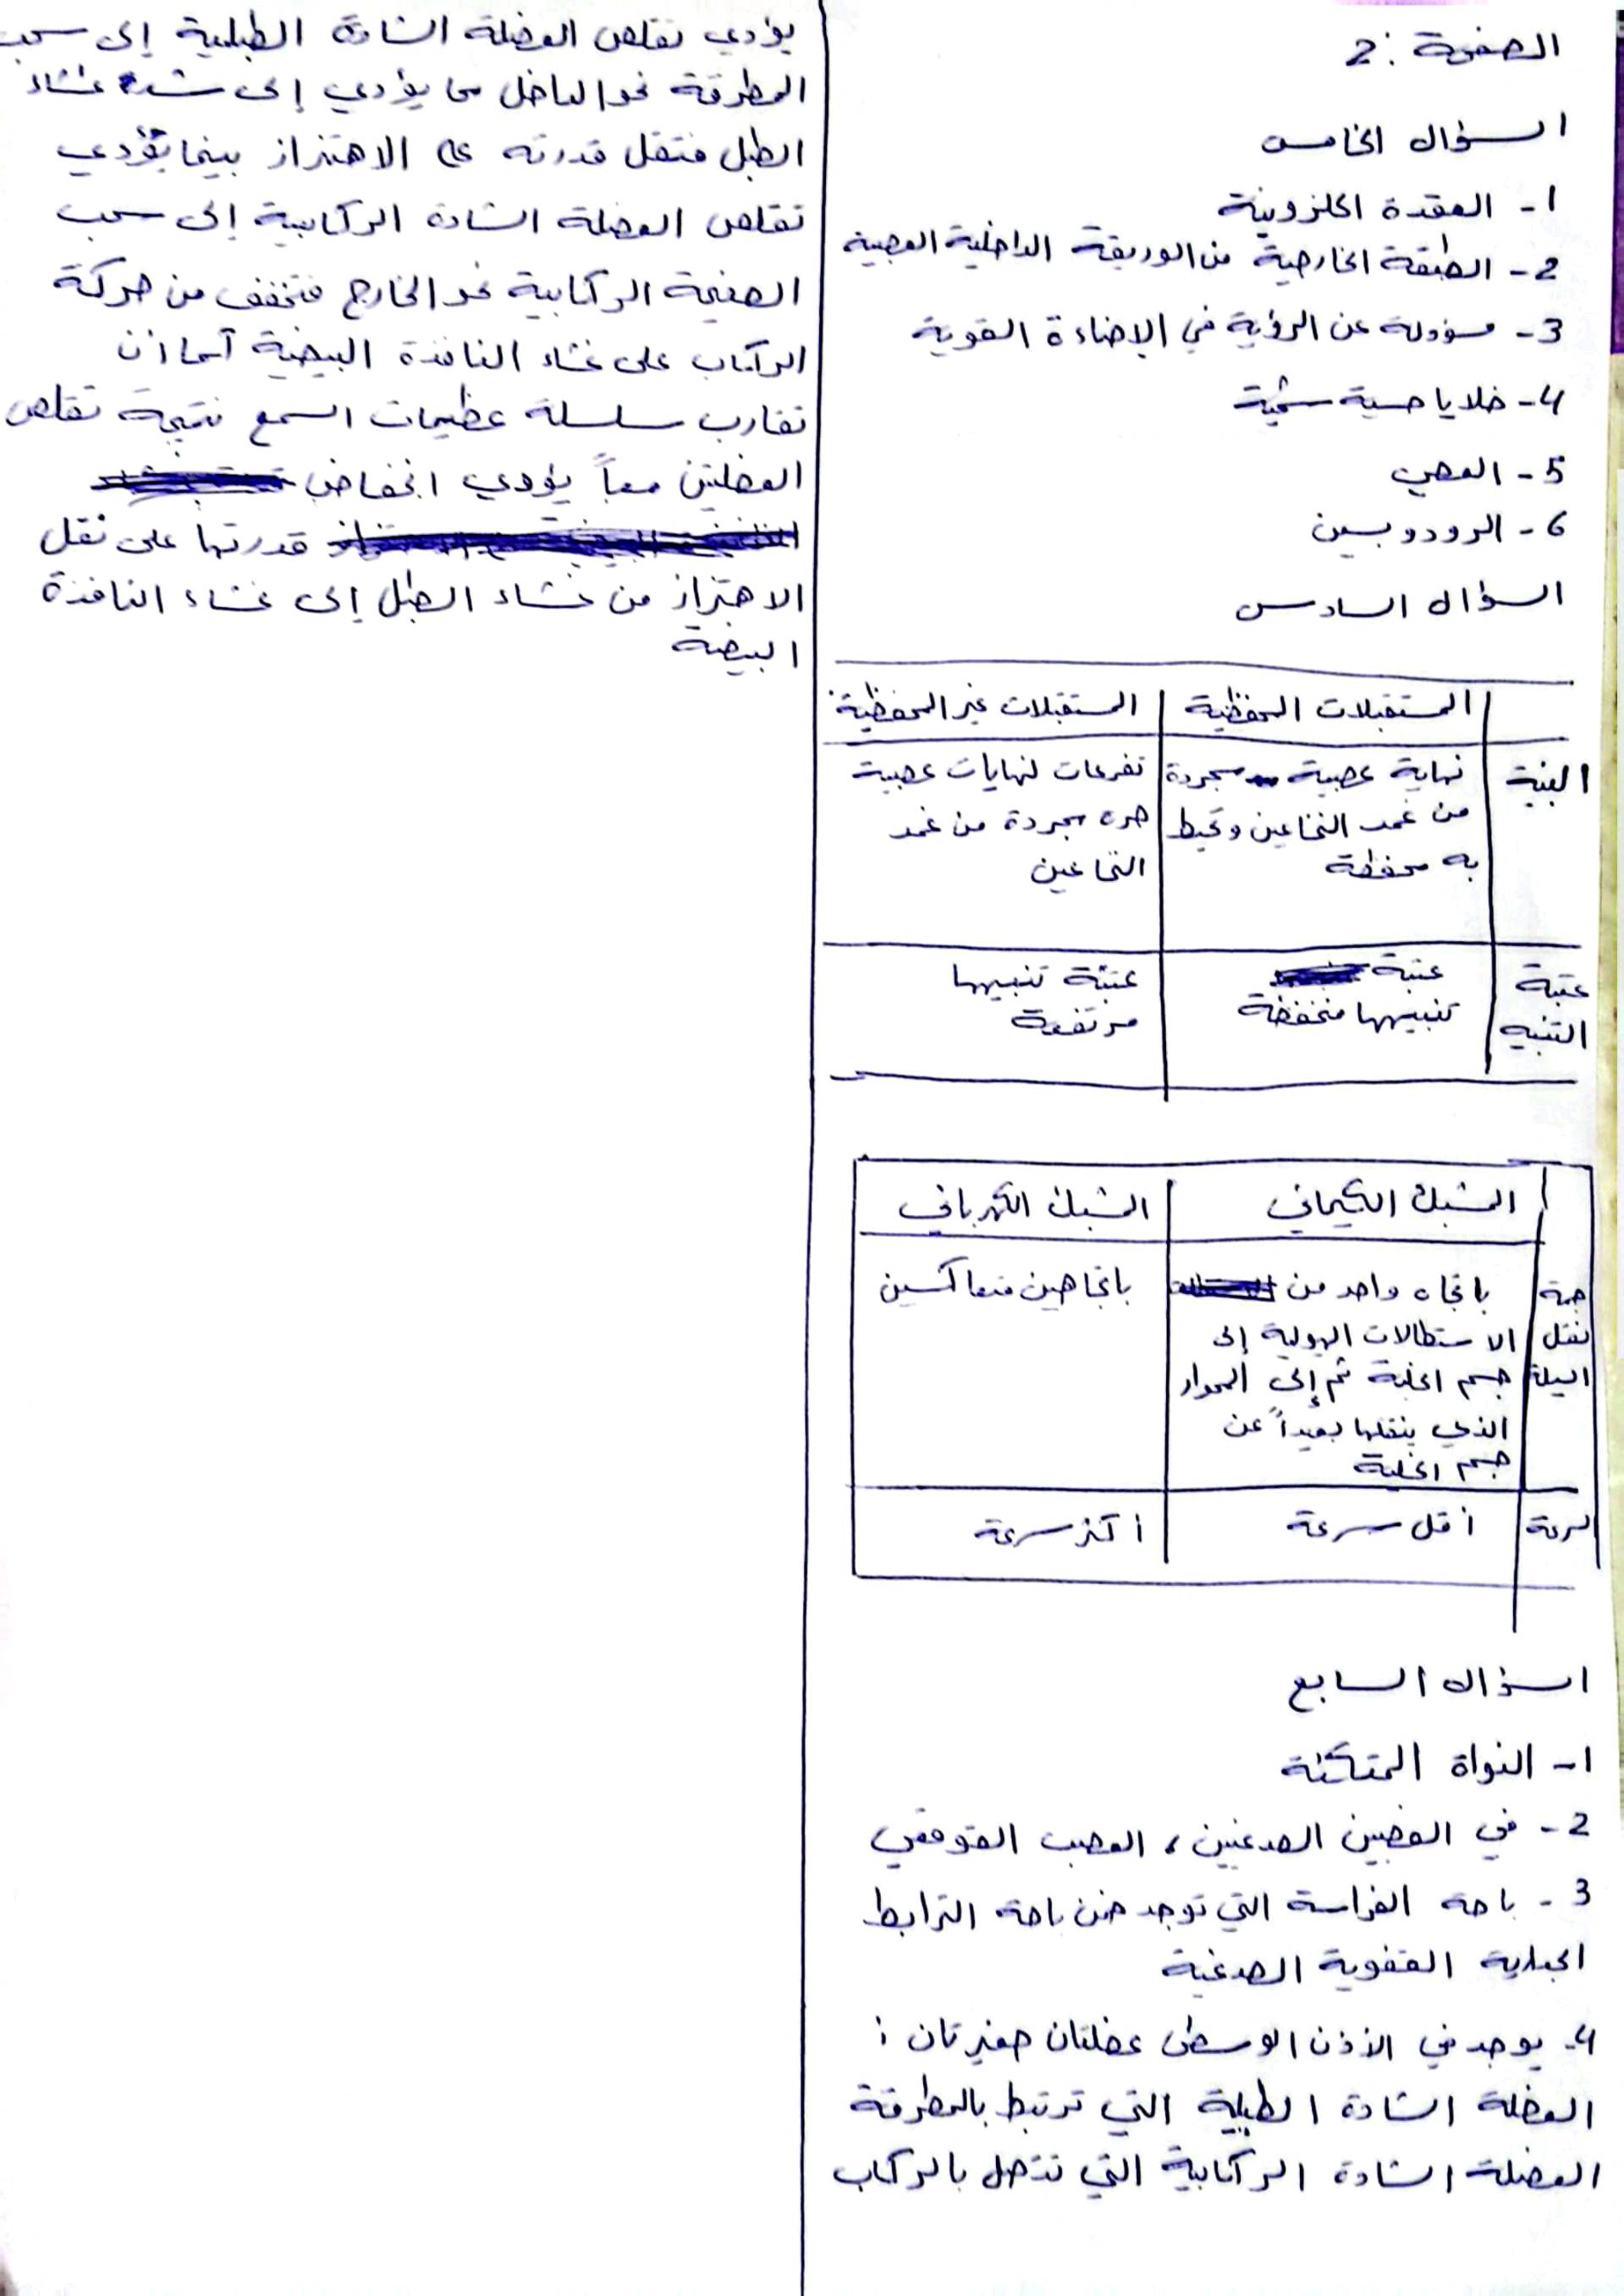 الصفحة : 2
السؤال الخامس
1- العقدة الحلزونية
2- الطبقة الخارجية من الوريقة الداخلية العصبية
3- مسؤولة عن الرؤية في الإضاءة القوية
4- خلايا حسية شمية
5- العصي
6- الرودوبسين
السؤال السادس
المستقبلات المحفظية | المستقبلات غير المحفظية
البنية | نهاية عصبية مجردة | تفرعات لنهايات عصبية
من غمد النخاعين وتحيط | حرة مجردة من غمد
به محفظة | النخاعين
عتبة | عتبة | عتبة تنبيهها
التنبيه | تنبيهها منخفضة | مرتفعة
المشبك الكيميائي | المشبك الكهربائي
جهة | باتجاه واحد من | باتجاهين متعاكسين
نقل | الاستطالات الهيولية إلى
السيالة | جسم الخلية ثم إلى المحوار
الذي ينقلها بعيداً عن
جسم الخلية
السرعة | أقل سرعة | أكثر سرعة
السؤال السابع
1- النواة المتكئة
2- في الفصين الصدغيين، العصب القوقعي
3- باحة الفراسة التي توجد ضمن باحة الترابط
الجدارية القفوية الصدغية
4- يوجد في الأذن الوسطى عضلتان صغيرتان :
العضلة الشادة الطبلية التي ترتبط بالمطرقة
العضلة الشادة الركابية التي تتصل بالركاب
يؤدي تقلص العضلة الشادة الطبلية إلى سحب
المطرقة نحو الداخل مما يؤدي إلى شد غشاء
الطبل فتقل قدرته على الاهتزاز بينما يؤدي
تقلص العضلة الشادة الركابية إلى سحب
الصفيحة الركابية نحو الخارج فتخفف من حركة
الركاب على غشاء النافذة البيضية كما أن
تقارب سلسلة عظيمات السمع نتيجة تقلص
العضلتين معاً يؤدي انخفاض
قدرتها على نقل
الاهتزاز من غشاء الطبل إلى غشاء النافذة
البيضية